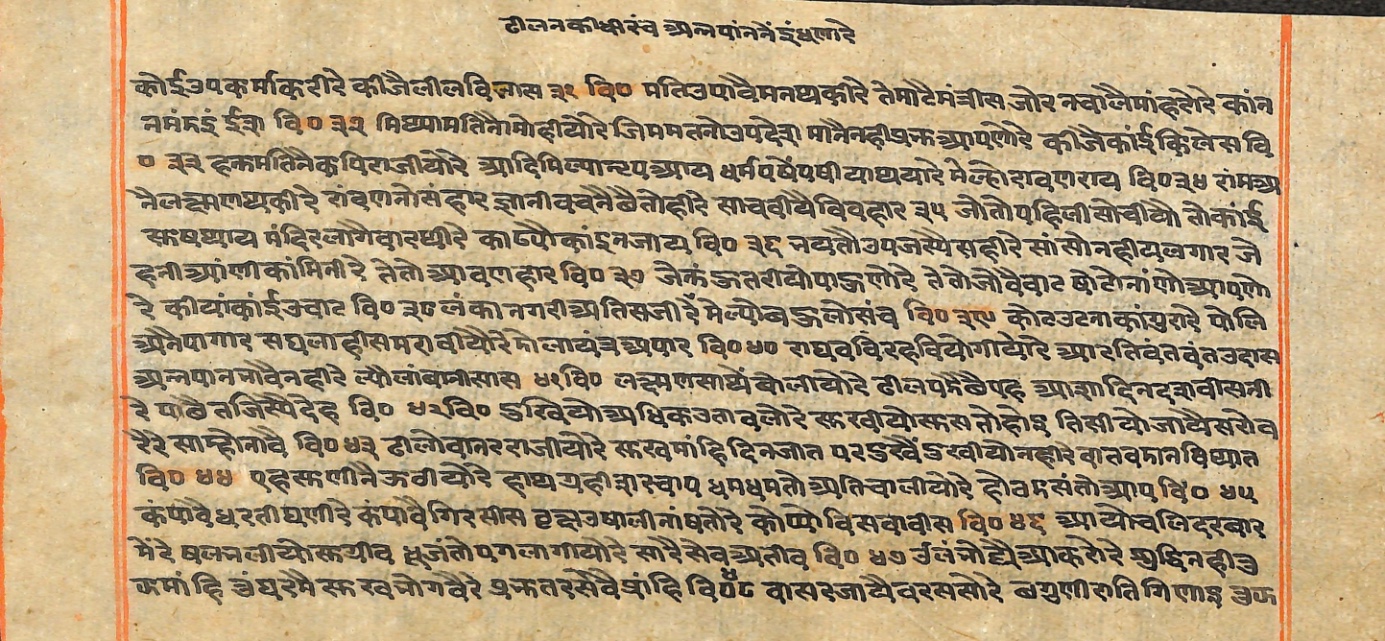 ढीलनकीधी रंच अन्नपांननें इंधणारे
कोई उपकर्मा करी रे कीजै लील विलास ३१ वि० मति उपावै मनथकी रे ते माटै मंत्रीस जोर न चालै मांहरो रे कांन
नमंदइं ईश वि० ३२ मिथ्यामतिनै मोहीयो रे जिममतनो उपदेश मानै नही प्रभु आपणो रे कीजे कांई किलेस वि
० ३३ हनुमतिनै कपिराजीयो रे आदि मिल्या नृप आय धर्मपषें पषीया थया रे मेल्हो रावणराय वि० ३४ रांम अ
नै लछमण थकी रे रांवणनो संहार ज्ञानीवचनै छै तो ही रे साचवीयै विवहार ३५ जो तो पहिली सोचीयो तो कांई
सुष थाय मंदिर लागै बारथी रे काढ्यौ कांइ न जाय वि० ३६ भयतौ उपजस्यै सही रे सांसो नही य लगार जे
हनी आंणी कांमिनी रे ते तो आवणहार वि० ३७ जे तुं ऊतरीयो पाऊणो रे ते तो जोवै वाट षोटो नांणो आपणो
रे कीयां कांई उचाट वि० ३८ लंका नगरी अति सजी रे मेल्यो बहुलो संच वि० ३९ कोट उटना कांगुरा रे पोलि
अनै पागार सघला ही समरावीयो रे गोला यंत्र अपार वि० ४० राघव विरह वियोगीयो रे आरतिवंत वंत उदास
अन्नपान भावै नही रे ल्यै लांबा नीसास ४१ वि० लछमण साथें बोलीयो रे ढील पडै छै एह आशा दिन दश वीसनी
रे पाछै तजिस्यै देह वि० ४२ वि० दुखियो अधिक उतावलो रे सुखीयो सुसतो होइ तिसीयो जायै सरोव
रे रे साम्हो नावै वि० ४३ ढीलो वानरराजीयो रे सुखमांहि दिन जात परदुखें दुखीयो नही रे वात वदान विख्यात
वि० ४४ एह सुणीनै ऊठीयो रे हाथ ग्रही शर चाप धमधमतो अति चालीयो रे होठ डसंतो आप वि० ४५
कंपावै धरती घणी रे कंपावै गिरसीस वृक्ष उषाली नांषतो रे कोप्यो विसवावीस वि० ४६ आयो चलि दरबार
में रे षलभलीयो सुग्रीव धूजंतो पगलागीयो रे सारै सेव अतीव वि० ४७ उलंभो द्यै आकरो रे सुद्धि नही तु
झमांहि तुं घर मै सुख भोगवै रे प्रभु तरु सेवै प्रांहि वि० ४८ वासर जायै वरससो रे बगुणी राति गिणाइ तुझ